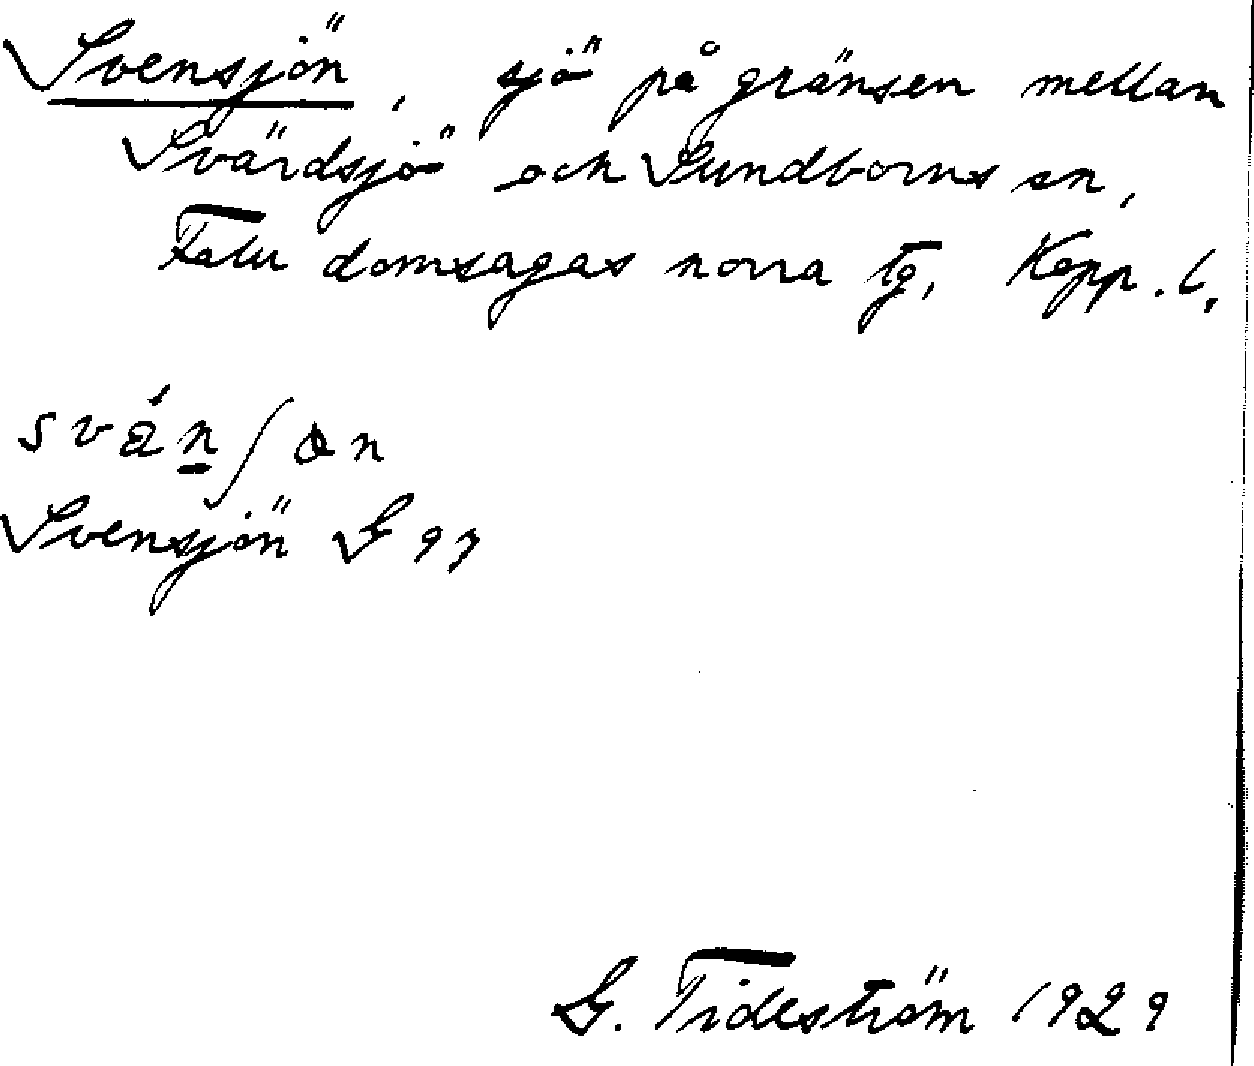 Svensjön, sjö på gränsen mellan
Svärdsjö och Sundborns sn,
Falu domsagas norra tg, Kopp. l,
Svensjön G 97
G. Tideström 1929